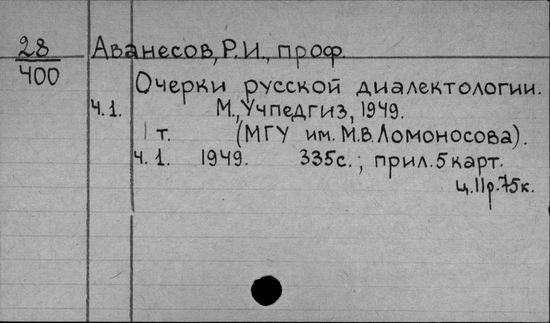 28 Аванесов, Р.И., проф.
400
Очерки русской диалектологии.
Ч.1. М., Учпедгиз, 1949.
1 т. (МГУ им. М.В. Ломоносова).
Ч.1. 1949. 335с.; прил. 5 карт.
ц. 11р. 75к.